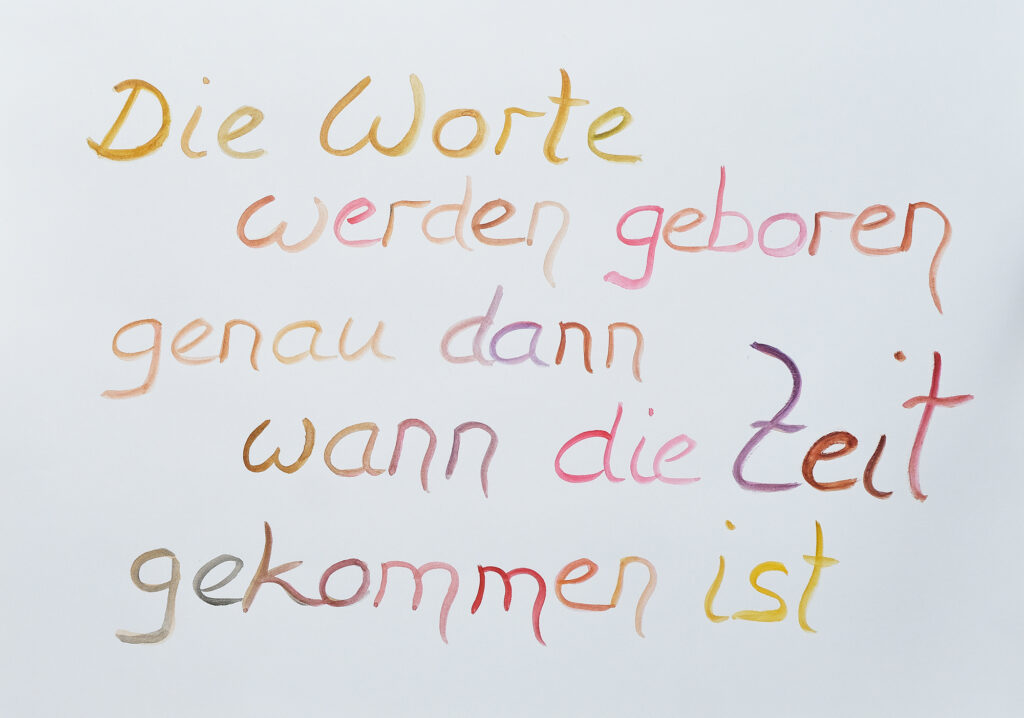 Die Worte
werden geboren
genau dann
wann die Zeit
gekommen ist